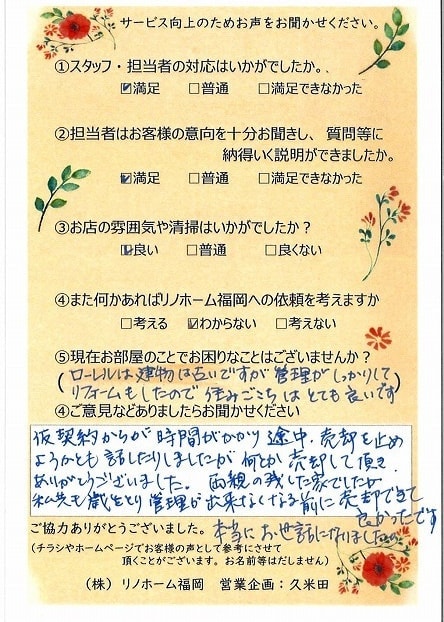 サービス向上のためお声をお聞かせください。
①スタッフ・担当者の対応はいかがでしたか。
☑満足 □普通 □満足できなかった
②担当者はお客様の意向を十分お聞きし、質問等に
納得いく説明ができましたか。
☑満足 □普通 □満足できなかった
③お店の雰囲気や清掃はいかがでしたか？
☑良い □普通 □良くない
④また何かあればリノホーム福岡への依頼を考えますか
□考える ☑わからない □考えない
⑤現在お部屋のことでお困りなことはございませんか？
(ローレルは建物は古いですが管理がしっかりして
リフォームもしたので住みごこちはとても良いです
④ご意見などありましたらお聞かせください
仮契約からが時間がかかり途中、売却を止め
ようかとも話したりしましたが何とか売却して頂き
ありがとうございました。両親の残した家でしたが
私共も歳をとり管理が出来なくなる前に売却できて
良かったです
ご協力ありがとうございました。本当にお世話になりました
(チラシやホームページでお客様の声として参考にさせて
頂くことがございます。お名前等はだしません)
（株）リノホーム福岡 営業企画：久米田